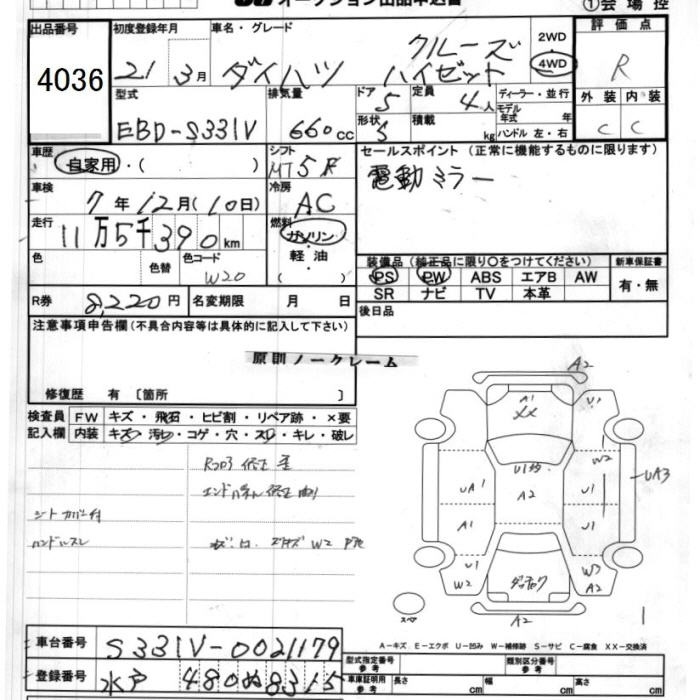 オークション出品申込書
①会場控
出品番号 初度登録年月 車名・グレード 2WD 評価点
4036 21 3月 ダイハツ クルーズ ハイゼット 4WD R
型式 排気量 ドア 定員 ディーラー・並行 外装 内装
EBD-S331V 660cc 5 4人 モデル年式 年 C C
形状 積載 kg ハンドル 左・右
S
車歴 シフト セールスポイント (正常に機能するものに限ります)
自家用・( ) MT5F 電動ミラー
車検 冷房
7年12月(10日) AC
走行 燃料
11万5千390km ガソリン・軽油・( )
色 色替 カラーコード 装備品(純正品に限り○をつけてください) 新車保証書
W20 PS PW ABS エアB AW 有・無
SR ナビ TV 本革
R券 8,220円 名変期限 月 日 後日品
注意事項申告欄(不具合内容等は具体的に記入して下さい)
原則ノークレーム
修復歴 有 〔箇所 〕
検査員記入欄 FW キズ・飛石・ヒビ割・リペア跡・×要
内装 キズ・汚レ・コゲ・穴・スレ・キレ・破レ
シートカバー付
ハンドルスレ
A2
A1 XX
U1 U1
W2
UA1 A2 U1 UA3
A1 U1
U1 W3
W2 A2
A2
スペア
1
A-キズ E-エクボ U-凹み W-補修跡 S-サビ C-腐食 XX-交換済
車台番号 S331V-0021179
登録番号 水戸 480ぬ8315
型式指定番号 参考 類別区分番号 参考
車庫証明用 参考 長さ cm 幅 cm 高さ cm